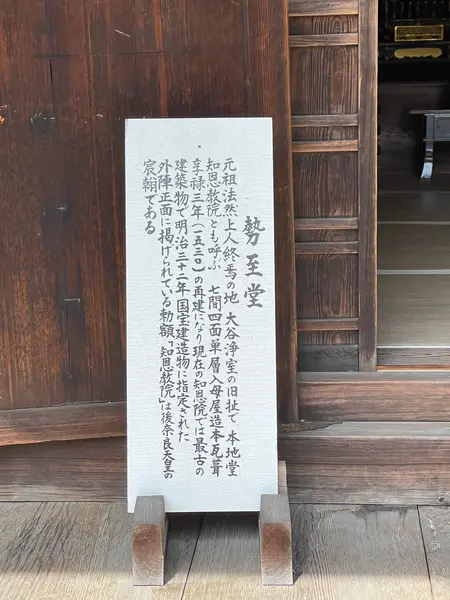 勢至堂
元祖法然上人終焉の地 大谷浄室の旧址で 本地堂
知恩教院とも呼ぶ 七間四面単層入母屋造本瓦葺
享禄三年(一五三〇)の再建になり現在の知恩院では最古の
建築物で明治三十二年国宝建造物に指定された
外陣正面に掲げられている勅額「知恩教院」は後奈良天皇の
宸翰である